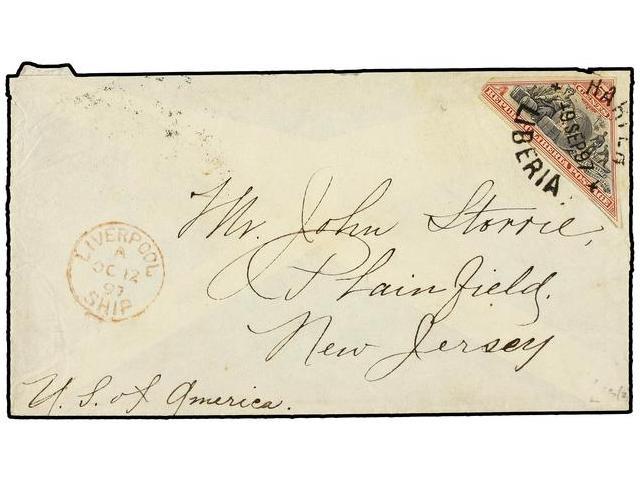 HARPER
* 19 SEP 97 *
LIBERIA.
LIVERPOOL
A
OC 12
97
SHIP
Mr. John Storrie,
Plainfield.
New Jersey
U. S. of America.